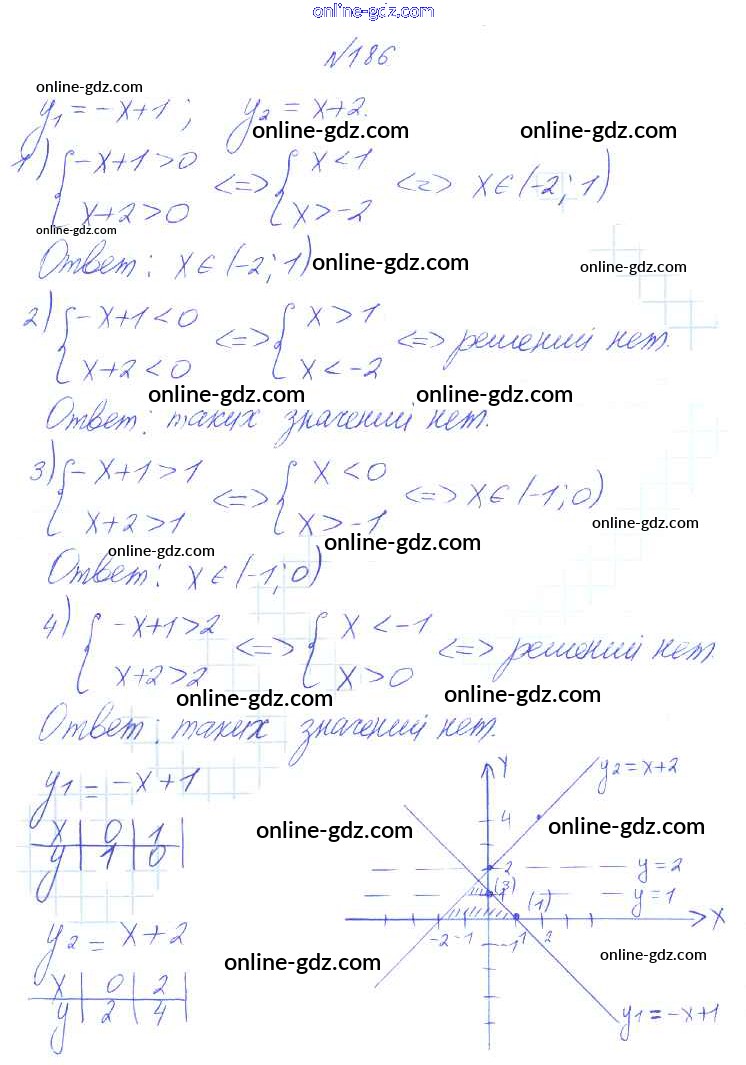 online-gdz.com
№186
online-gdz.com
y₁ = -x+1; y₂ = x+2.
online-gdz.com online-gdz.com
1) { -x+1>0 <=> { x<1 <=> x∈(-2; 1)
x+2>0 x>-2
online-gdz.com
Ответ: x∈(-2; 1)
online-gdz.com online-gdz.com
2) { -x+1<0 <=> { x>1 <=> решений нет.
x+2<0 x<-2
online-gdz.com online-gdz.com
Ответ: таких значений нет.
3) { -x+1>1 <=> { x<0 <=> x∈(-1; 0)
x+2>1 x>-1
online-gdz.com
online-gdz.com online-gdz.com
Ответ: x∈(-1; 0)
4) { -x+1>2 <=> { x<-1 <=> решений нет
x+2>2 x>0
online-gdz.com online-gdz.com
Ответ: таких значений нет.
y₁ = -x+1
x | 0 | 1 |
y | 1 | 0 |
online-gdz.com online-gdz.com
y₂ = x+2
x | 0 | 2 |
y | 2 | 4 |
online-gdz.com online-gdz.com
y
y₂=x+2
4
2 y=2
(3)
1 y=1
(1)
x
-2 -1 1 2
-1
y₁=-x+1